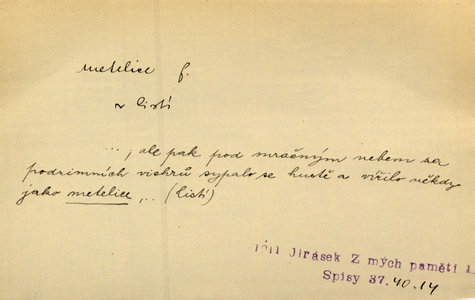 metelice f.
v listí
..., ale pak pod mračným nebem za
podzimních vichrů sypalo se hustě a vířilo někdy
jako metelice ... (listí)
1911 Jirásek Z mých pamětí 1.
Spisy 37.40.14